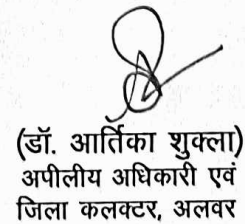 (डॉ. आर्तिका शुक्ला)
अपीलीय अधिकारी एवं
जिला कलक्टर, अलवर